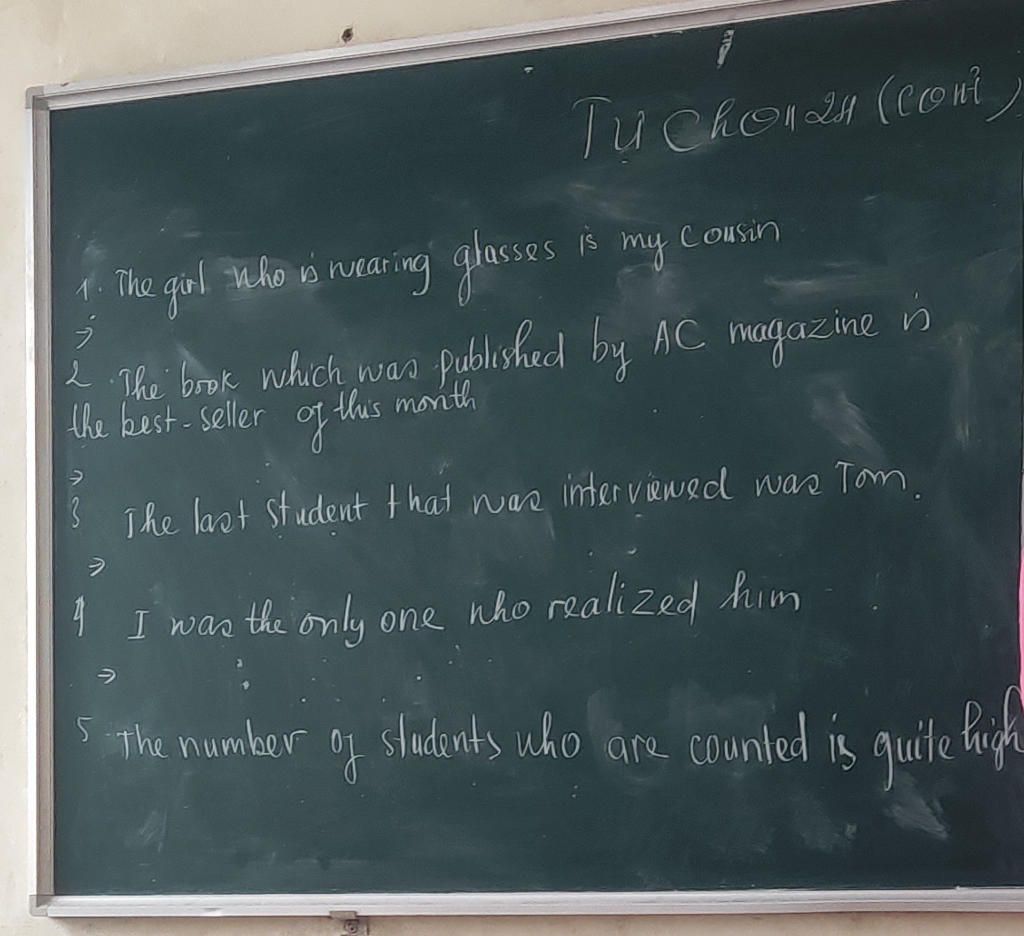 Tự Chọn 24 (cont)
1. The girl who is wearing glasses is my cousin
=>
2. The book which was published by AC magazine is
the best-seller of this month
=>
3 The last student that was interviewed was Tom.
=>
4 I was the only one who realized him
=>
5 The number of students who are counted is quite high